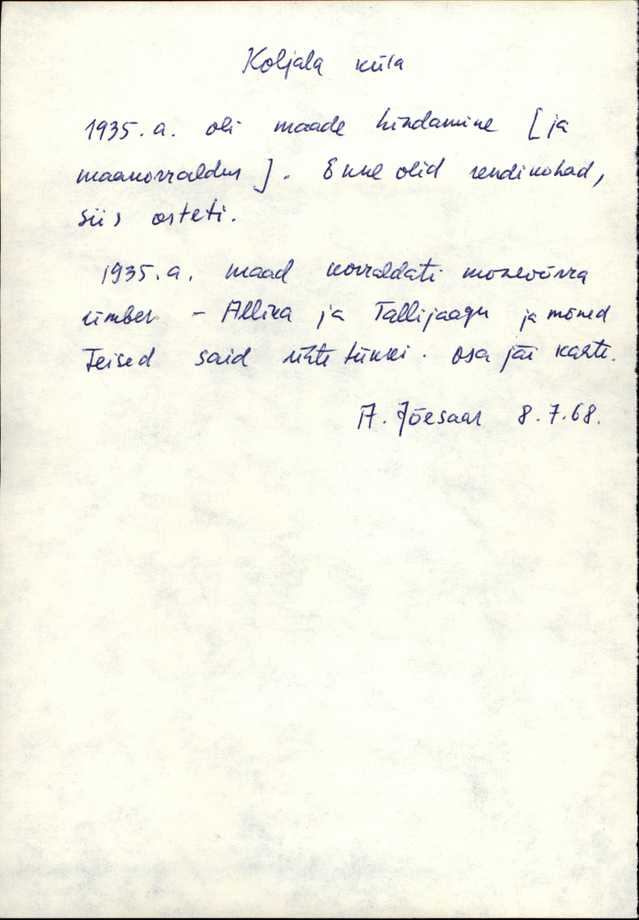 Koljala küla
1935. a. oli maade hindamine [ja
maakorraldus]. Enne olid rendikohad,
siis osteti.
1935. a. maad korraldati mõnevõrra
ümber – Allika ja Tallijaagu ja mõned
teised said ühte tükki. Osa jäi kahte.
A. Jõesaar 8.7.68.